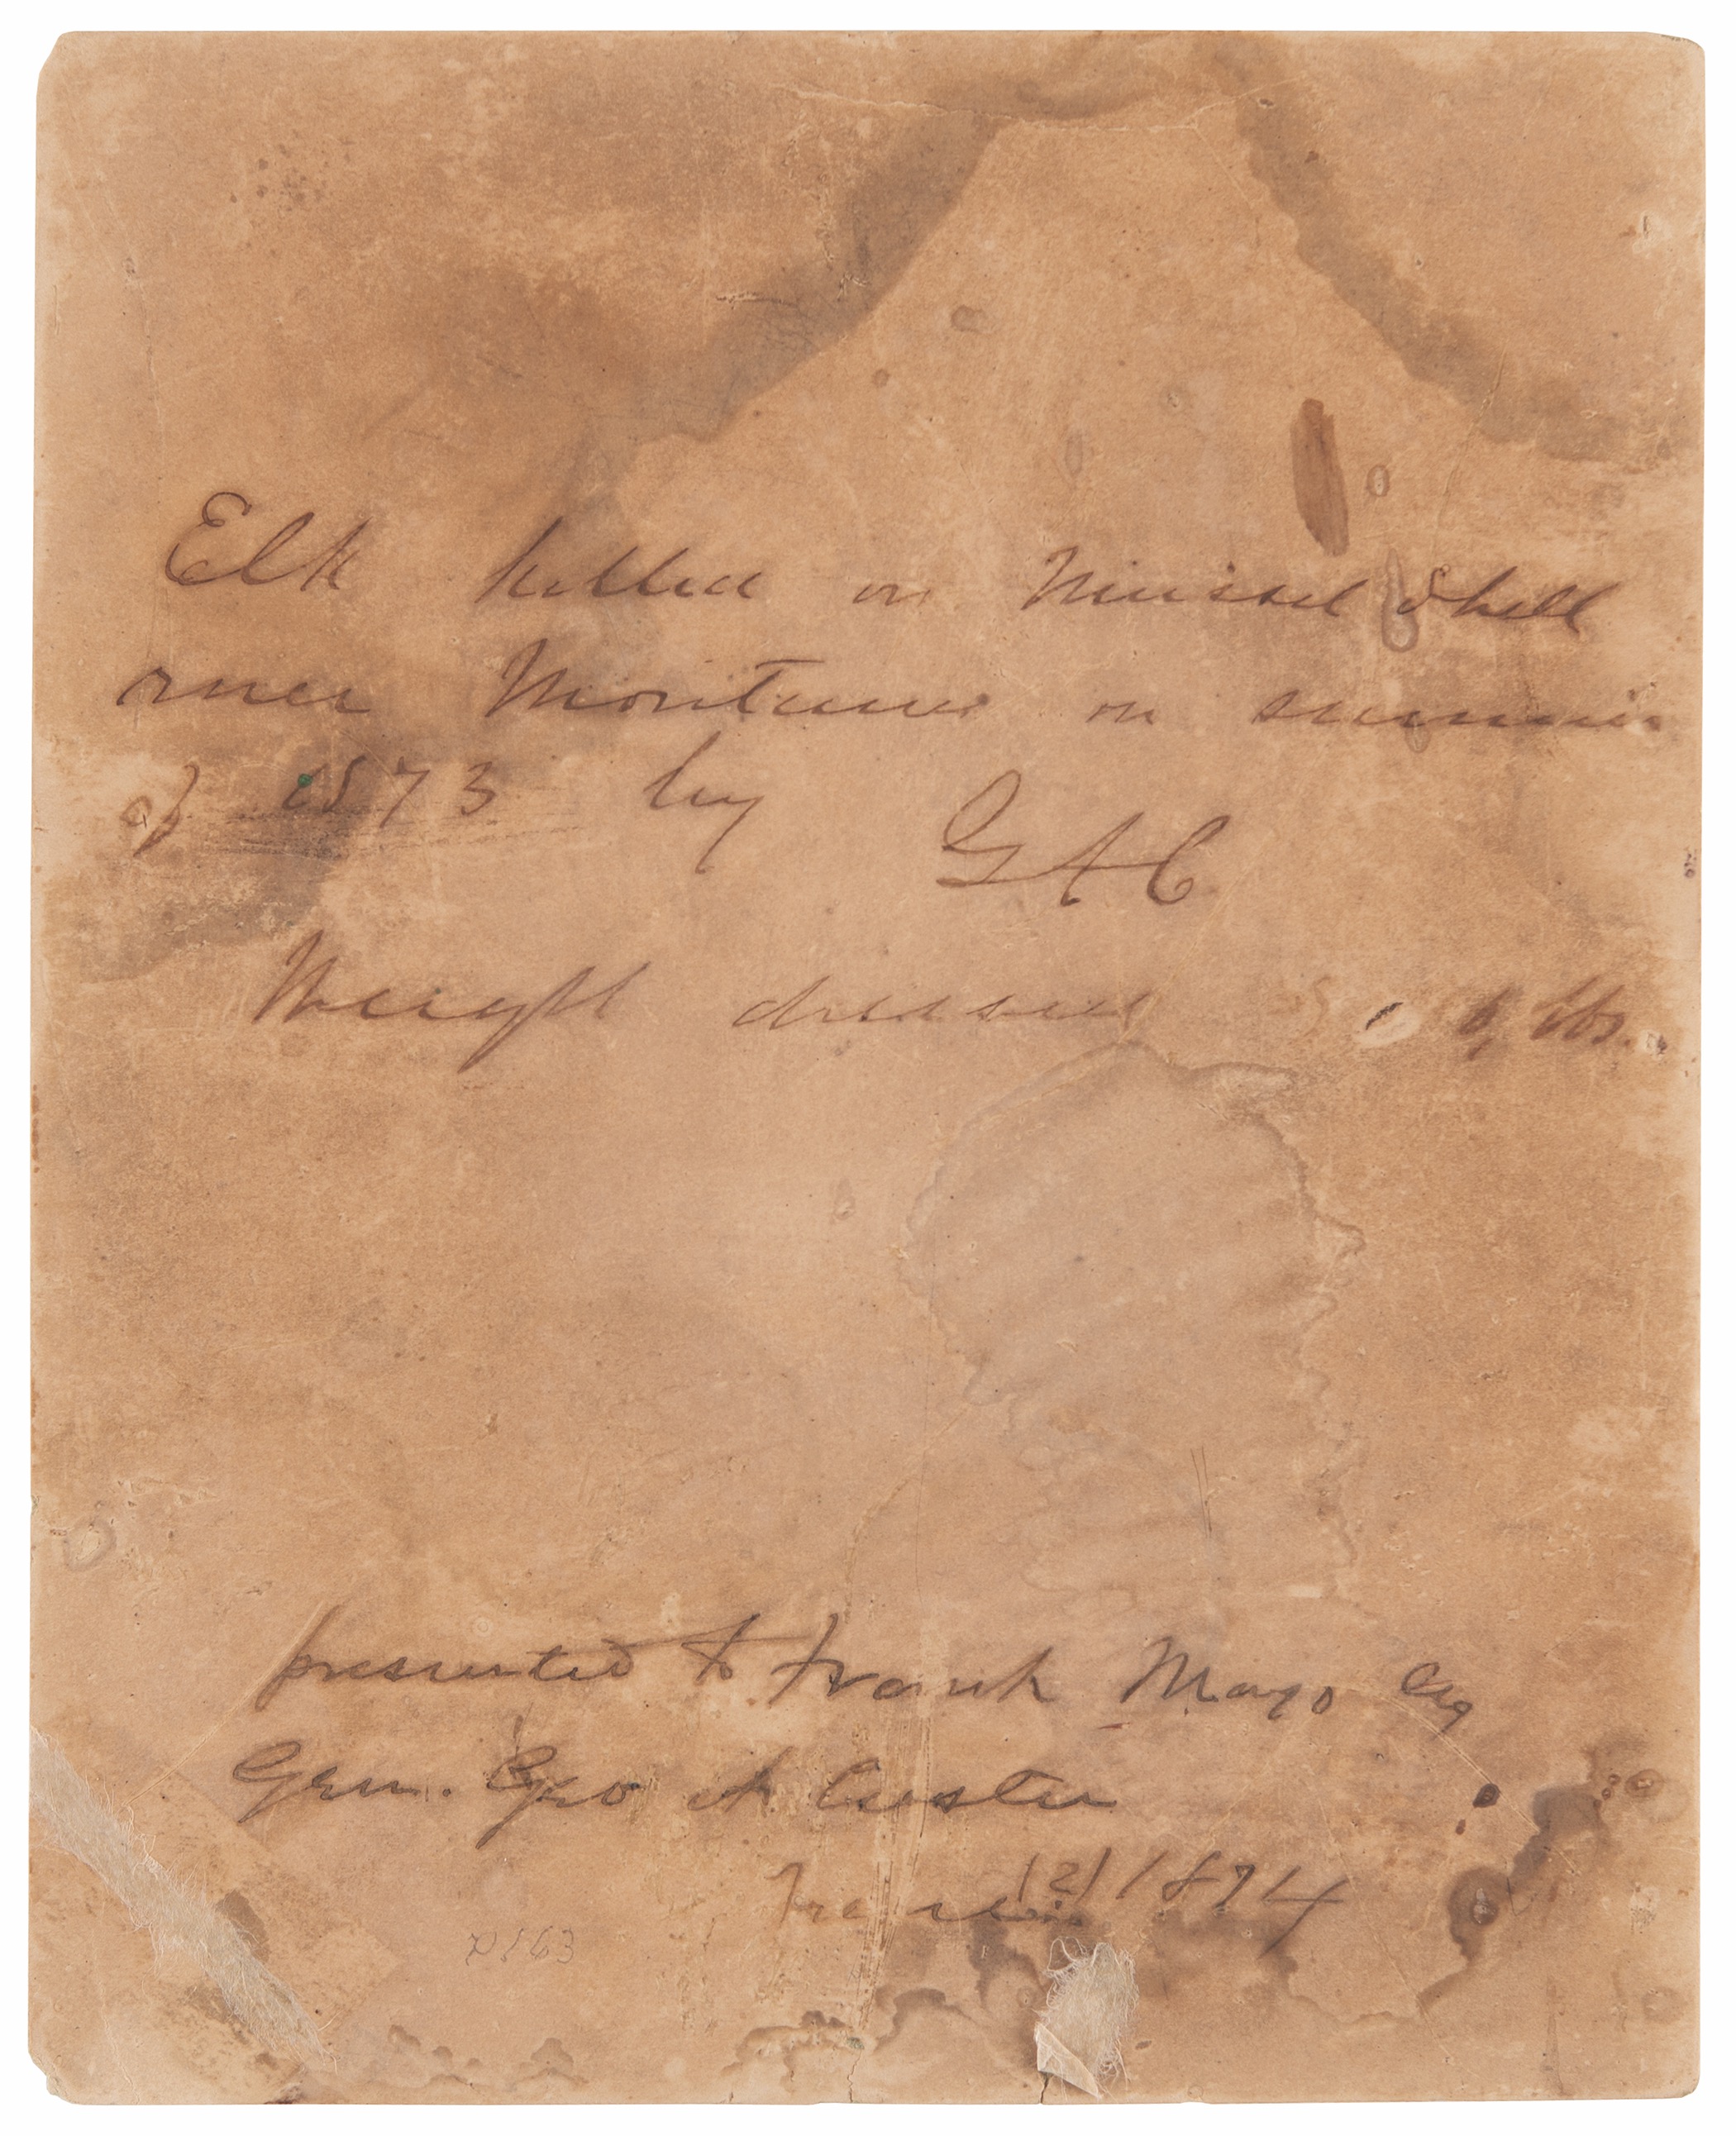 Elk killed on Mussel Shell
river Montana in summer
of 1873 by
GAC
Weight dressed lbs.
presented to Frank Mayo by
Gen. Geo A Custer
1874